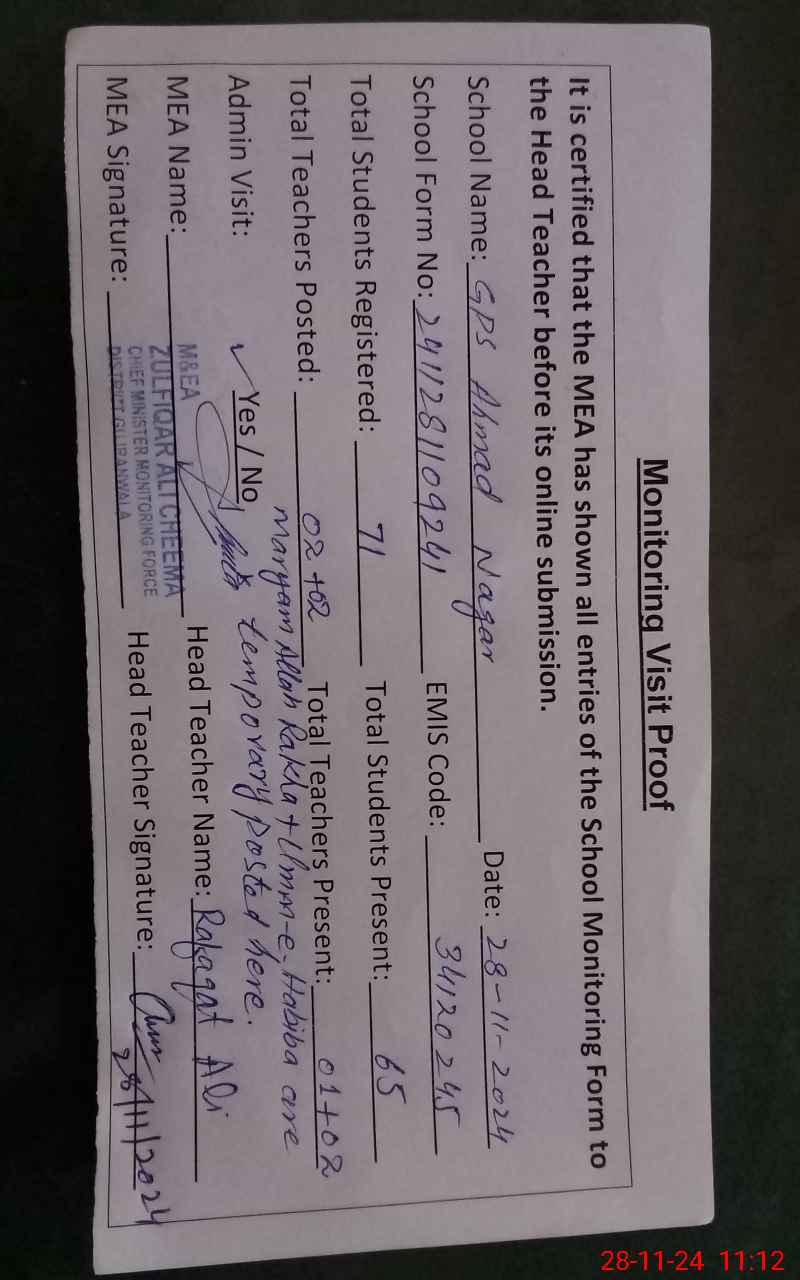 Monitoring Visit Proof
It is certified that the MEA has shown all entries of the School Monitoring Form to
the Head Teacher before its online submission.
School Name: GPS Ahmad Nagar Date: 28-11-2024
School Form No: 2411281109241 EMIS Code: 34120245
Total Students Registered: 71 Total Students Present: 65
Total Teachers Posted: 02+02 Total Teachers Present: 01+02
Maryam Allah Rakha + Umm-e-Habiba are
Admin Visit: ✓ Yes / No temporary posted here.
M&EA
MEA Name: ZULFIQAR ALI CHEEMA Head Teacher Name: Rafaqat Ali
CHIEF MINISTER MONITORING FORCE
MEA Signature: DISTRICT GUJRANWALA Head Teacher Signature:
28/11/2024
28-11-24 11:12